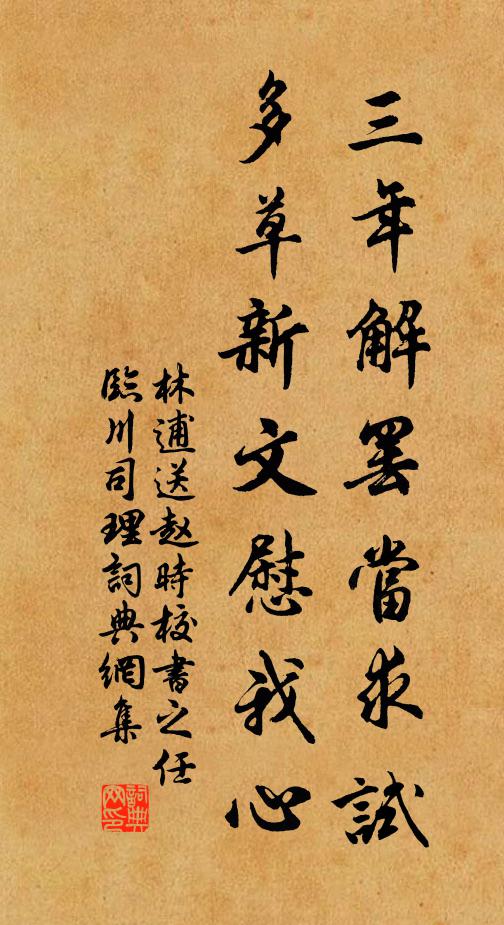 三年解罢當求試
多草新文慰我心
林逋送赵時校書之任
臨川司理詞典網集
詞典網印